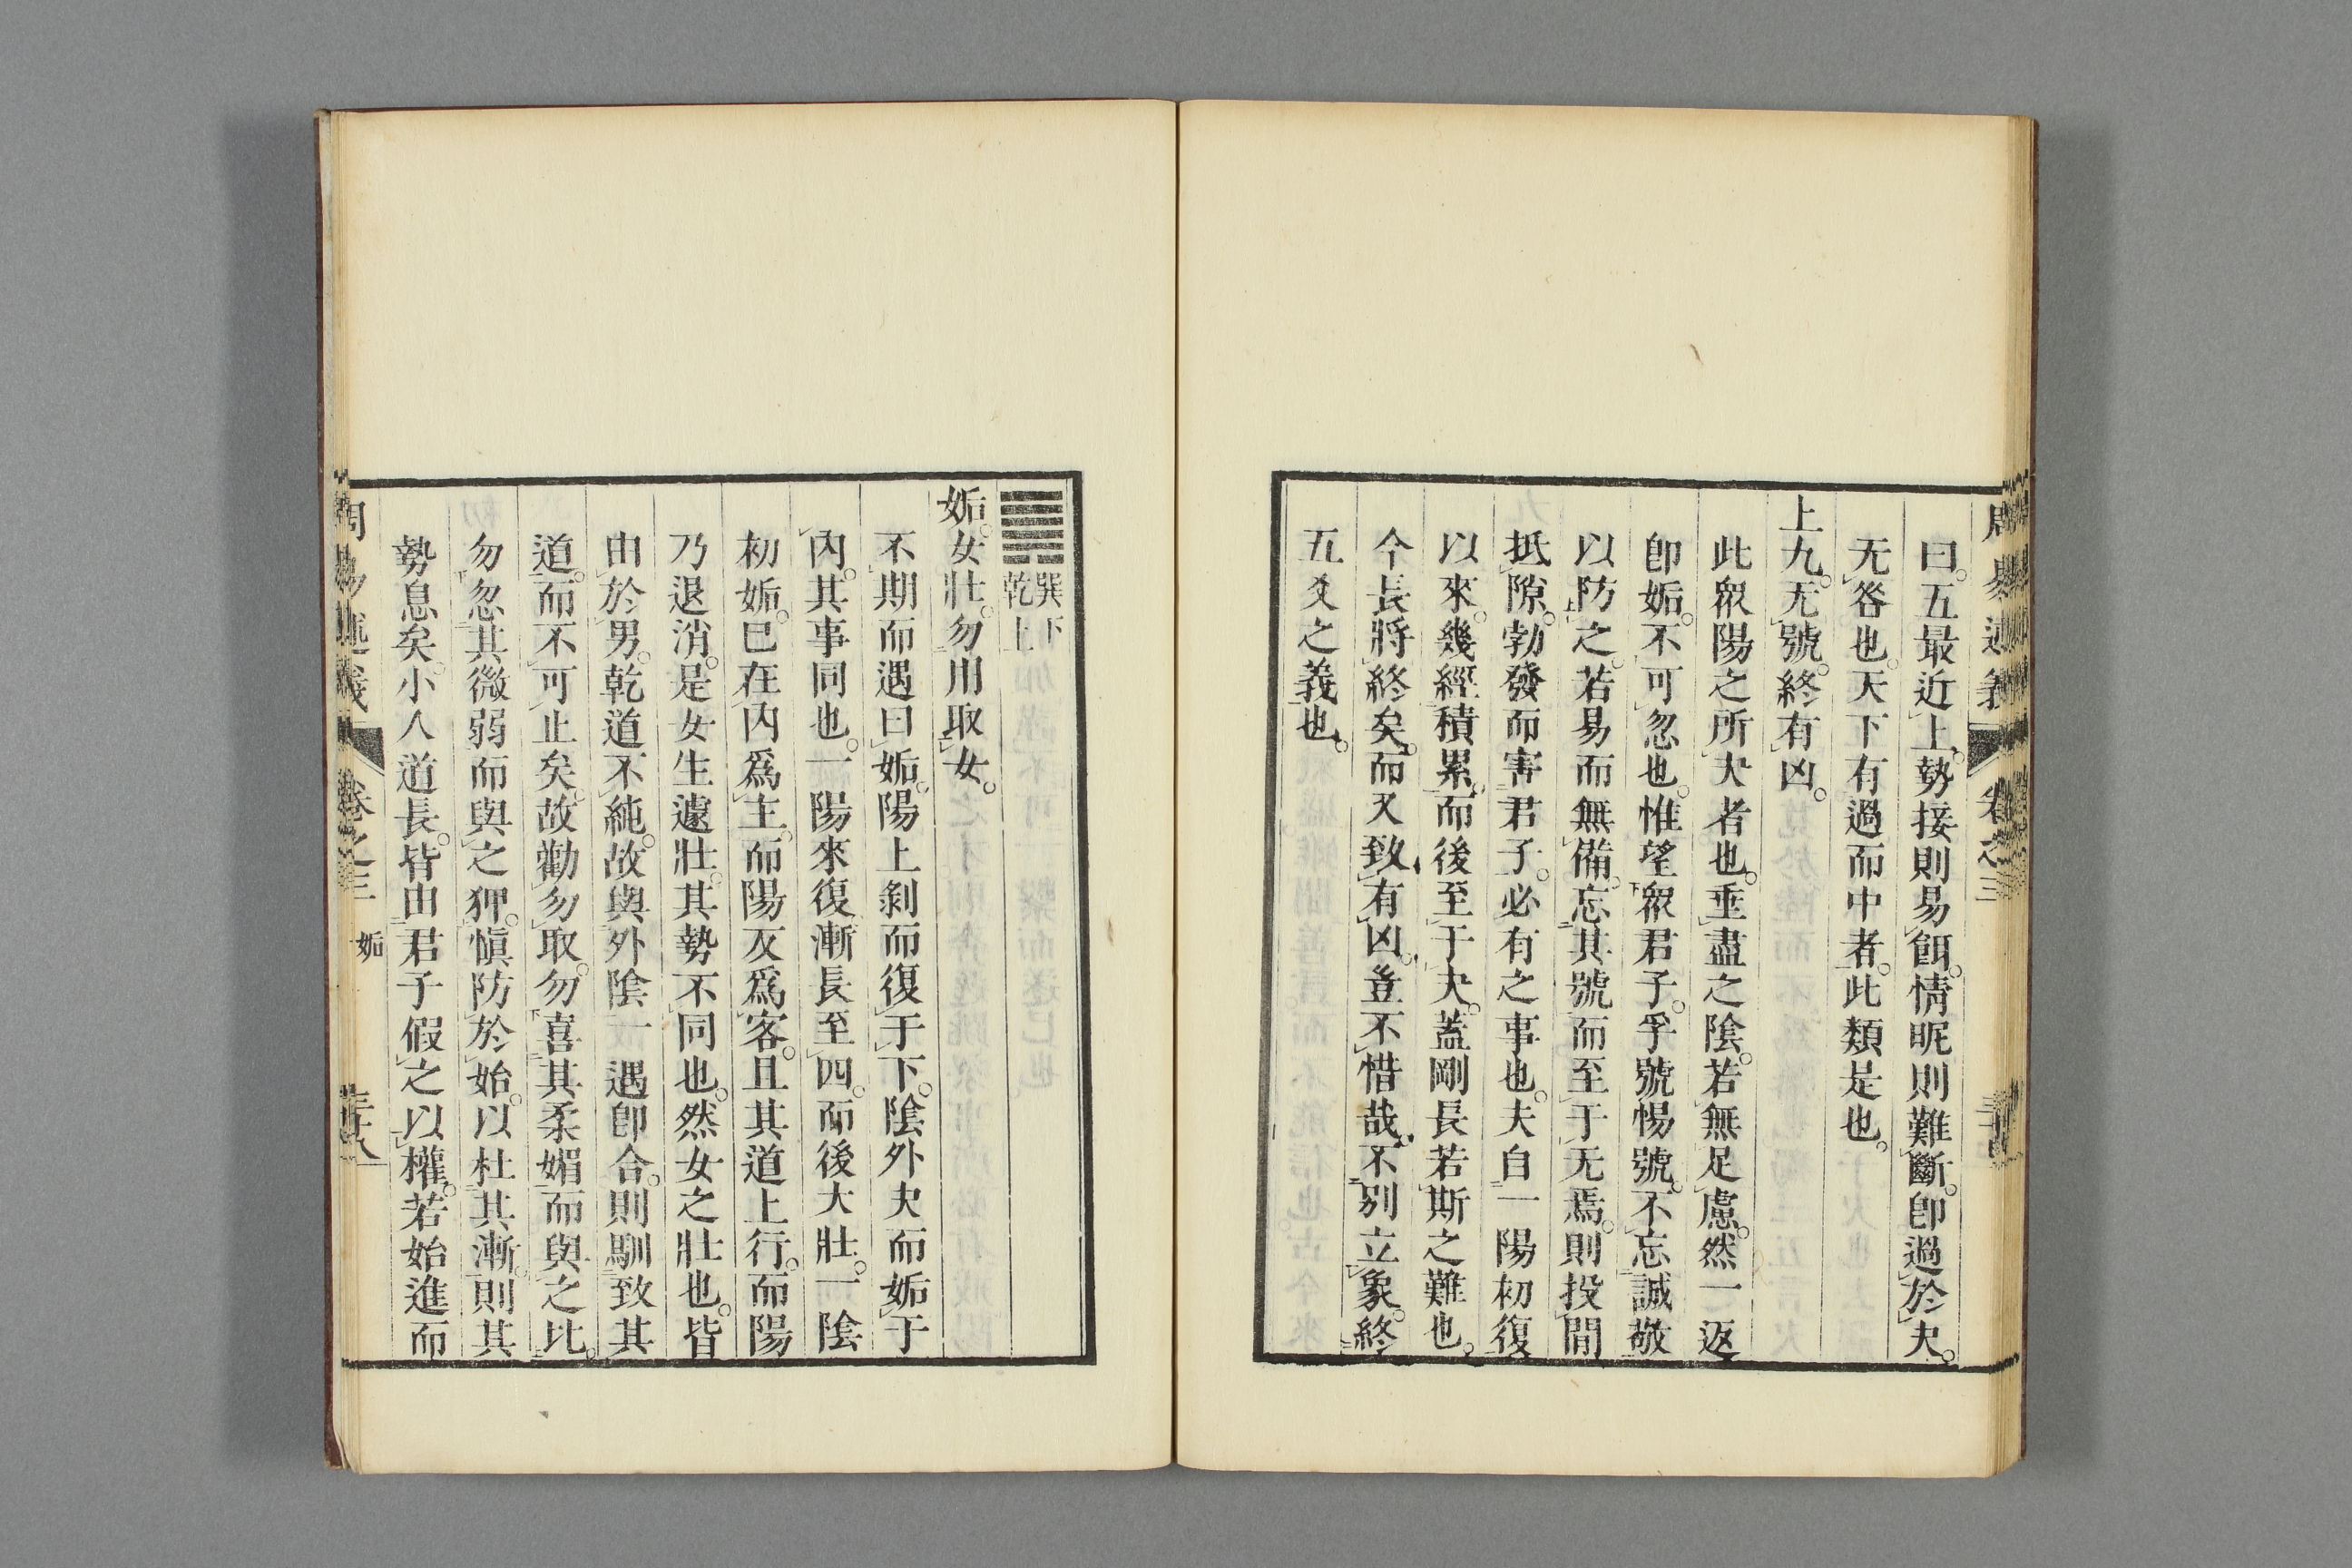 周易述義 卷之三
曰。五最近上。勢接則易餌。情昵則難斷。卽過於夬。
无咎也。天下有過而中者。此類是也。
上九。无號。終有凶。
此眾陽之所夬者也。垂盡之陰。若無足慮。然一返
卽姤。不可忽也。惟望眾君子。孚號惕號。不忘誠敬
以防之。若易而無備。忘其號而至于无焉。則投間
抵隙。勃發而害君子。必有之事也。夫自一陽初復
以來。幾經積累。而後至于夬。蓋剛長若斯之難也。
今長將終矣。而又致有凶。豈不惜哉。不別立象。終
五爻之義也。
巽下乾上
姤。女壯。勿用取女。
不期而遇曰姤。陽上剝而復于下。陰外夬而姤于
內。其事同也。一陽來復。漸長至四。而後大壯。一陰
初姤。已在內爲主。而陽反爲客。且其道上行。而陽
乃退消。是女生遽壯。其勢不同也。然女之壯也。皆
由於男。乾道不純。故與外陰一遇卽合。則馴致其
道。而不可止矣。故勸勿取。勿喜其柔媚而與之比。
勿忽其微弱而與之狎。愼防於始。以杜其漸。則其
勢息矣。小人道長。皆由君子假之以權。若始進而
周易述義 卷之三 姤 三十八